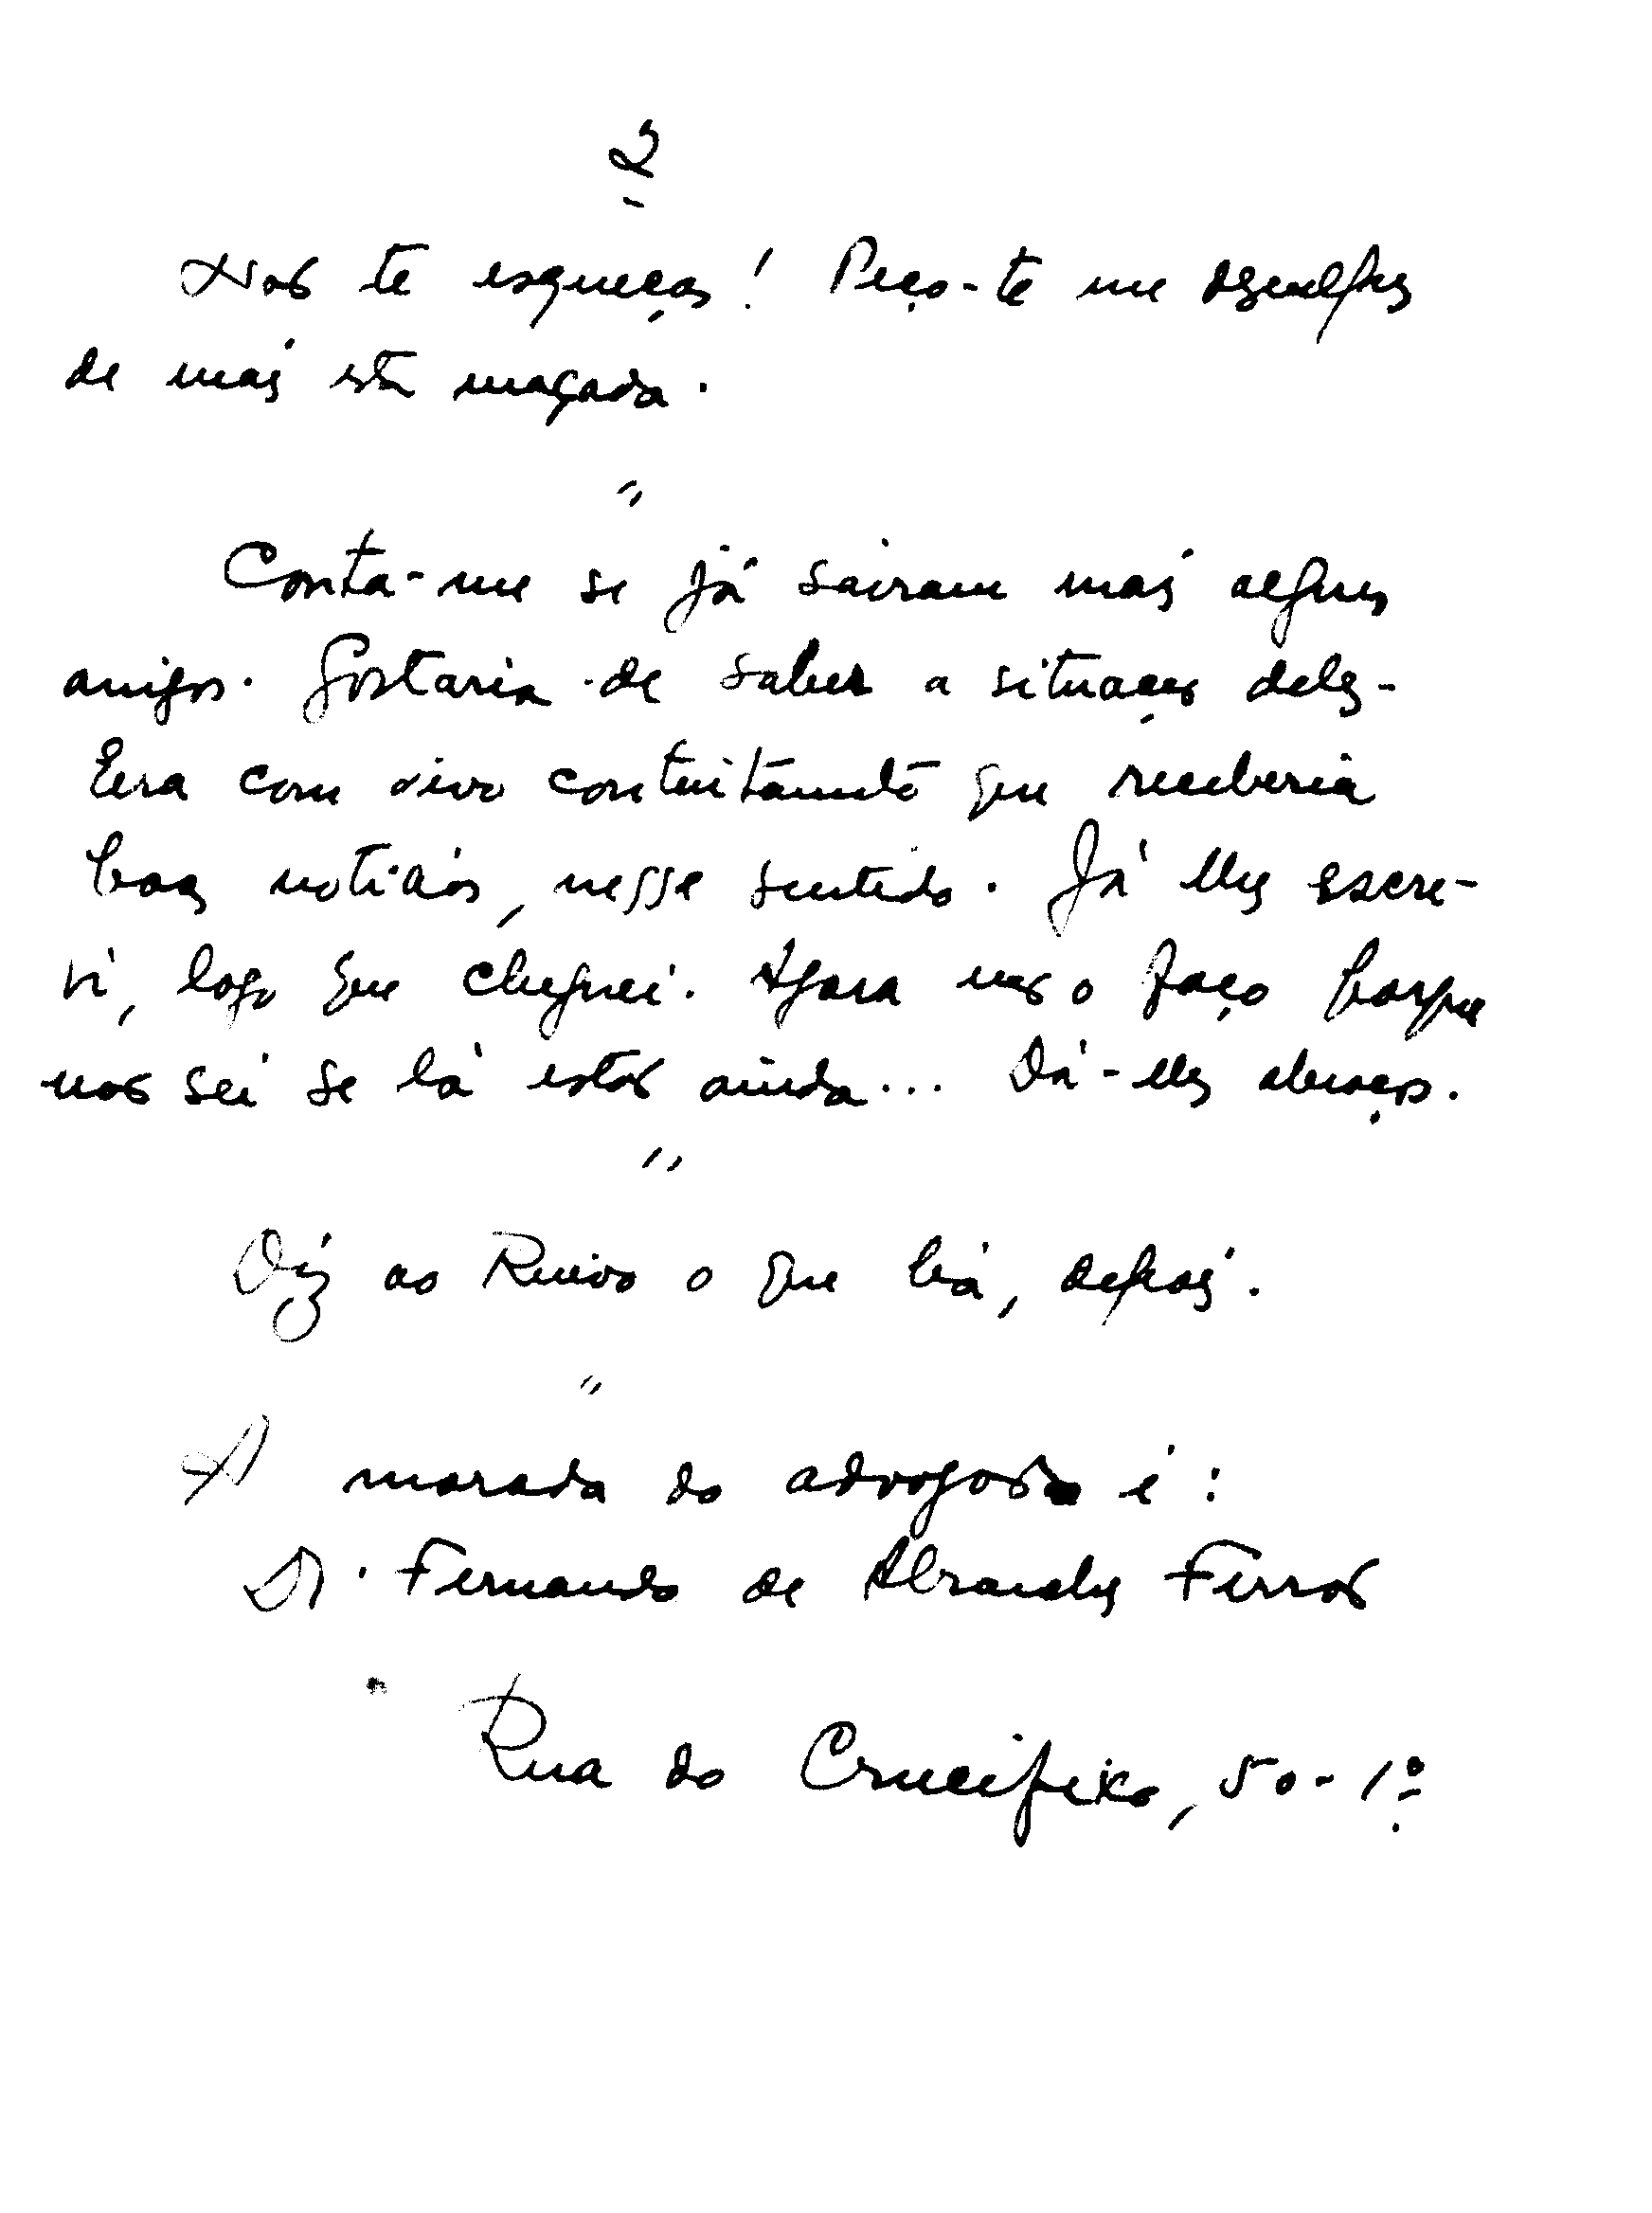 2
Não te esqueças! Peço-te me desculpes
de mais esta maçada.
"
Conta-me se já sairam mais alguns
amigos. Gostaria de saber a situação deles.
Era com vivo contentamento que receberia
boas noticias, nesse sentido. Já lhes escre-
vi, logo que cheguei. Agora não o faço porque
não sei se lá estão ainda... Dá-lhes abraços.
"
Diz ao Ruivo o que há, depois.
"
A morada do advogado é:
Dr. Fernando de Abranches Ferrão
Rua do Crucifixo, 50-1º